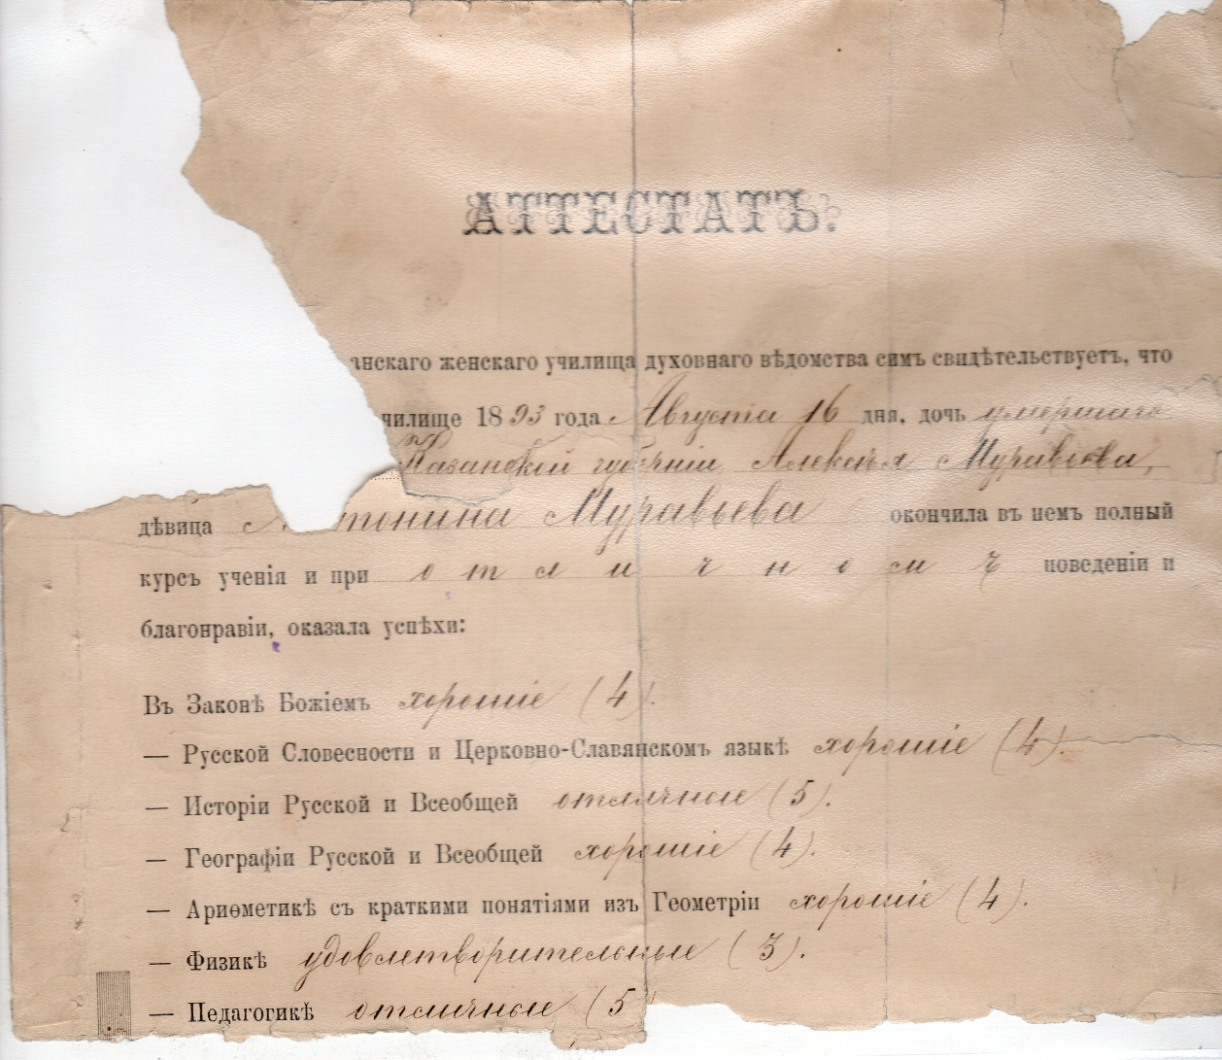 АТТЕСТАТЪ.
анскаго женскаго училища духовнаго вѣдомства симъ свидѣтельствуетъ, что
чилище 1893 года Августа 16 дня, дочь умершаго
Казанской губерніи Алексѣя Муравьева,
дѣвица Антонина Муравьева окончила въ немъ полный
курсъ ученія и при отличномъ поведеніи и
благонравіи, оказала успѣхи:
Въ Законѣ Божіемъ хорошіе (4).
— Русской Словесности и Церковно-Славянскомъ языкѣ хорошіе (4).
— Исторіи Русской и Всеобщей отличные (5).
— Географіи Русской и Всеобщей хорошіе (4).
— Ариѳметикѣ съ краткими понятіями изъ Геометріи хорошіе (4).
— Физикѣ удовлетворительные (3).
— Педагогикѣ отличные (5